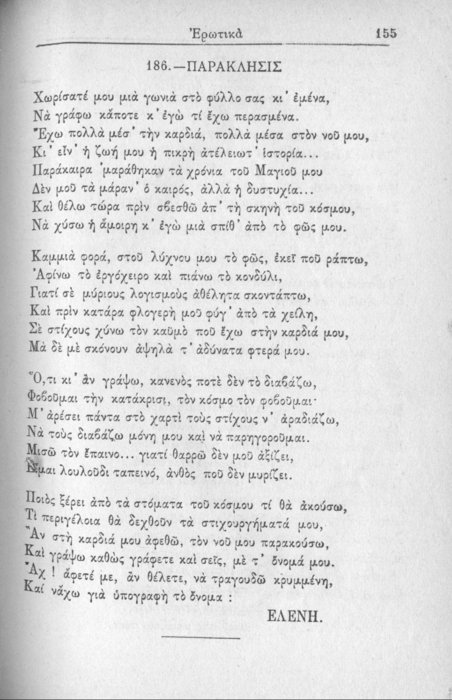 Ἐρωτικὰ 155
186.—ΠΑΡΑΚΛΗΣΙΣ
Χωρίσατέ μου μιὰ γωνιὰ στὸ φύλλο σας κι᾿ ἐμένα,
Νὰ γράφω κάποτε κ᾿ ἐγὼ τί ἔχω περασμένα.
Ἔχω πολλὰ μέσ᾿ τὴν καρδιά, πολλὰ μέσα στὸν νοῦ μου,
Κι᾿ εἶν᾿ ἡ ζωή μου ἡ πικρὴ ἀτέλειωτ᾿ ἱστορία...
Παράκαιρα ᾿μαράθηκαν τὰ χρόνια τοῦ Μαγιοῦ μου
Δὲν μοῦ τὰ μάραν᾿ ὁ καιρός, ἀλλὰ ἡ δυστυχία...
Καὶ θέλω τώρα πρὶν σβεσθῶ ἀπ᾿ τὴ σκηνὴ τοῦ κόσμου,
Νὰ χύσω ἡ ἄμοιρη κ᾿ ἐγὼ μιὰ σπίθ᾿ ἀπὸ τὸ φῶς μου.
Καμμιὰ φορά, στοῦ λύχνου μου τὸ φῶς, ἐκεῖ ποῦ ράπτω,
Ἀφίνω τὸ ἐργόχειρο καὶ πιάνω τὸ κονδύλι,
Γιατί σὲ μύριους λογισμοὺς ἀθέλητα σκοντάπτω,
Καὶ πρὶν κατάρα φλογερὴ μοῦ φύγ᾿ ἀπὸ τὰ χείλη,
Σὲ στίχους χύνω τὸν καϋμὸ ποῦ ἔχω στὴν καρδιά μου,
Μὰ δὲ μὲ σκόνουν ἀψηλὰ τ᾿ ἀδύνατα φτερά μου.
Ὅ,τι κι᾿ ἂν γράψω, κανενὸς ποτὲ δὲν τὸ διαβάζω,
Φοβοῦμαι τὴν κατάκρισι, τὸν κόσμο τὸν φοβοῦμαι·
Μ᾿ ἀρέσει πάντα στὸ χαρτὶ τοὺς στίχους ν᾿ ἀραδιάζω,
Νὰ τοὺς διαβάζω μόνη μου καὶ νὰ παρηγοροῦμαι.
Μισῶ τὸν ἔπαινο... γιατί θαρρῶ δὲν μοῦ ἀξίζει,
Εἶμαι λουλοῦδι ταπεινό, ἀνθὸς ποῦ δὲν μυρίζει.
Ποιὸς ξέρει ἀπὸ τὰ στόματα τοῦ κόσμου τί θὰ ἀκούσω,
Τί περιγέλοια θὰ δεχθοῦν τὰ στιχουργήματά μου,
Ἂν στὴ καρδιά μου ἀφεθῶ, τὸν νοῦ μου παρακούσω,
Καὶ γράψω καθὼς γράφετε καὶ σεῖς, μὲ τ᾿ ὄνομά μου.
Ἄχ! ἀφετέ με, ἂν θέλετε, νὰ τραγουδῶ κρυμμένη,
Καί νἄχω γιὰ ὑπογραφὴ τὸ ὄνομα :
ΕΛΕΝΗ.